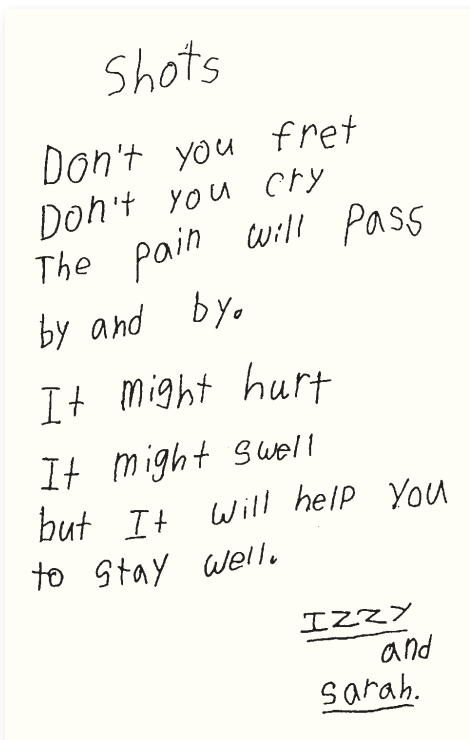 Shots
Don't you fret
Don't you cry
The pain will pass
by and by.
It might hurt
It might swell
but It will help you
to stay well.
IZZY
and
sarah.